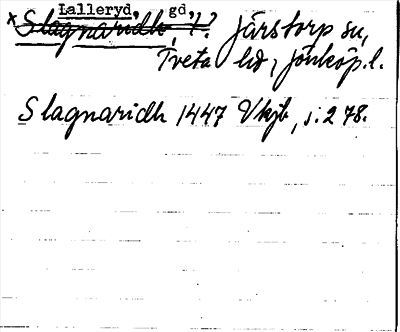 Lalleryd, gd,
*Slagnaridh, t? Järstorp sn,
Tveta hd, Jönköp. l.
Slagnaridh 1447 Vkjb, s. 278.